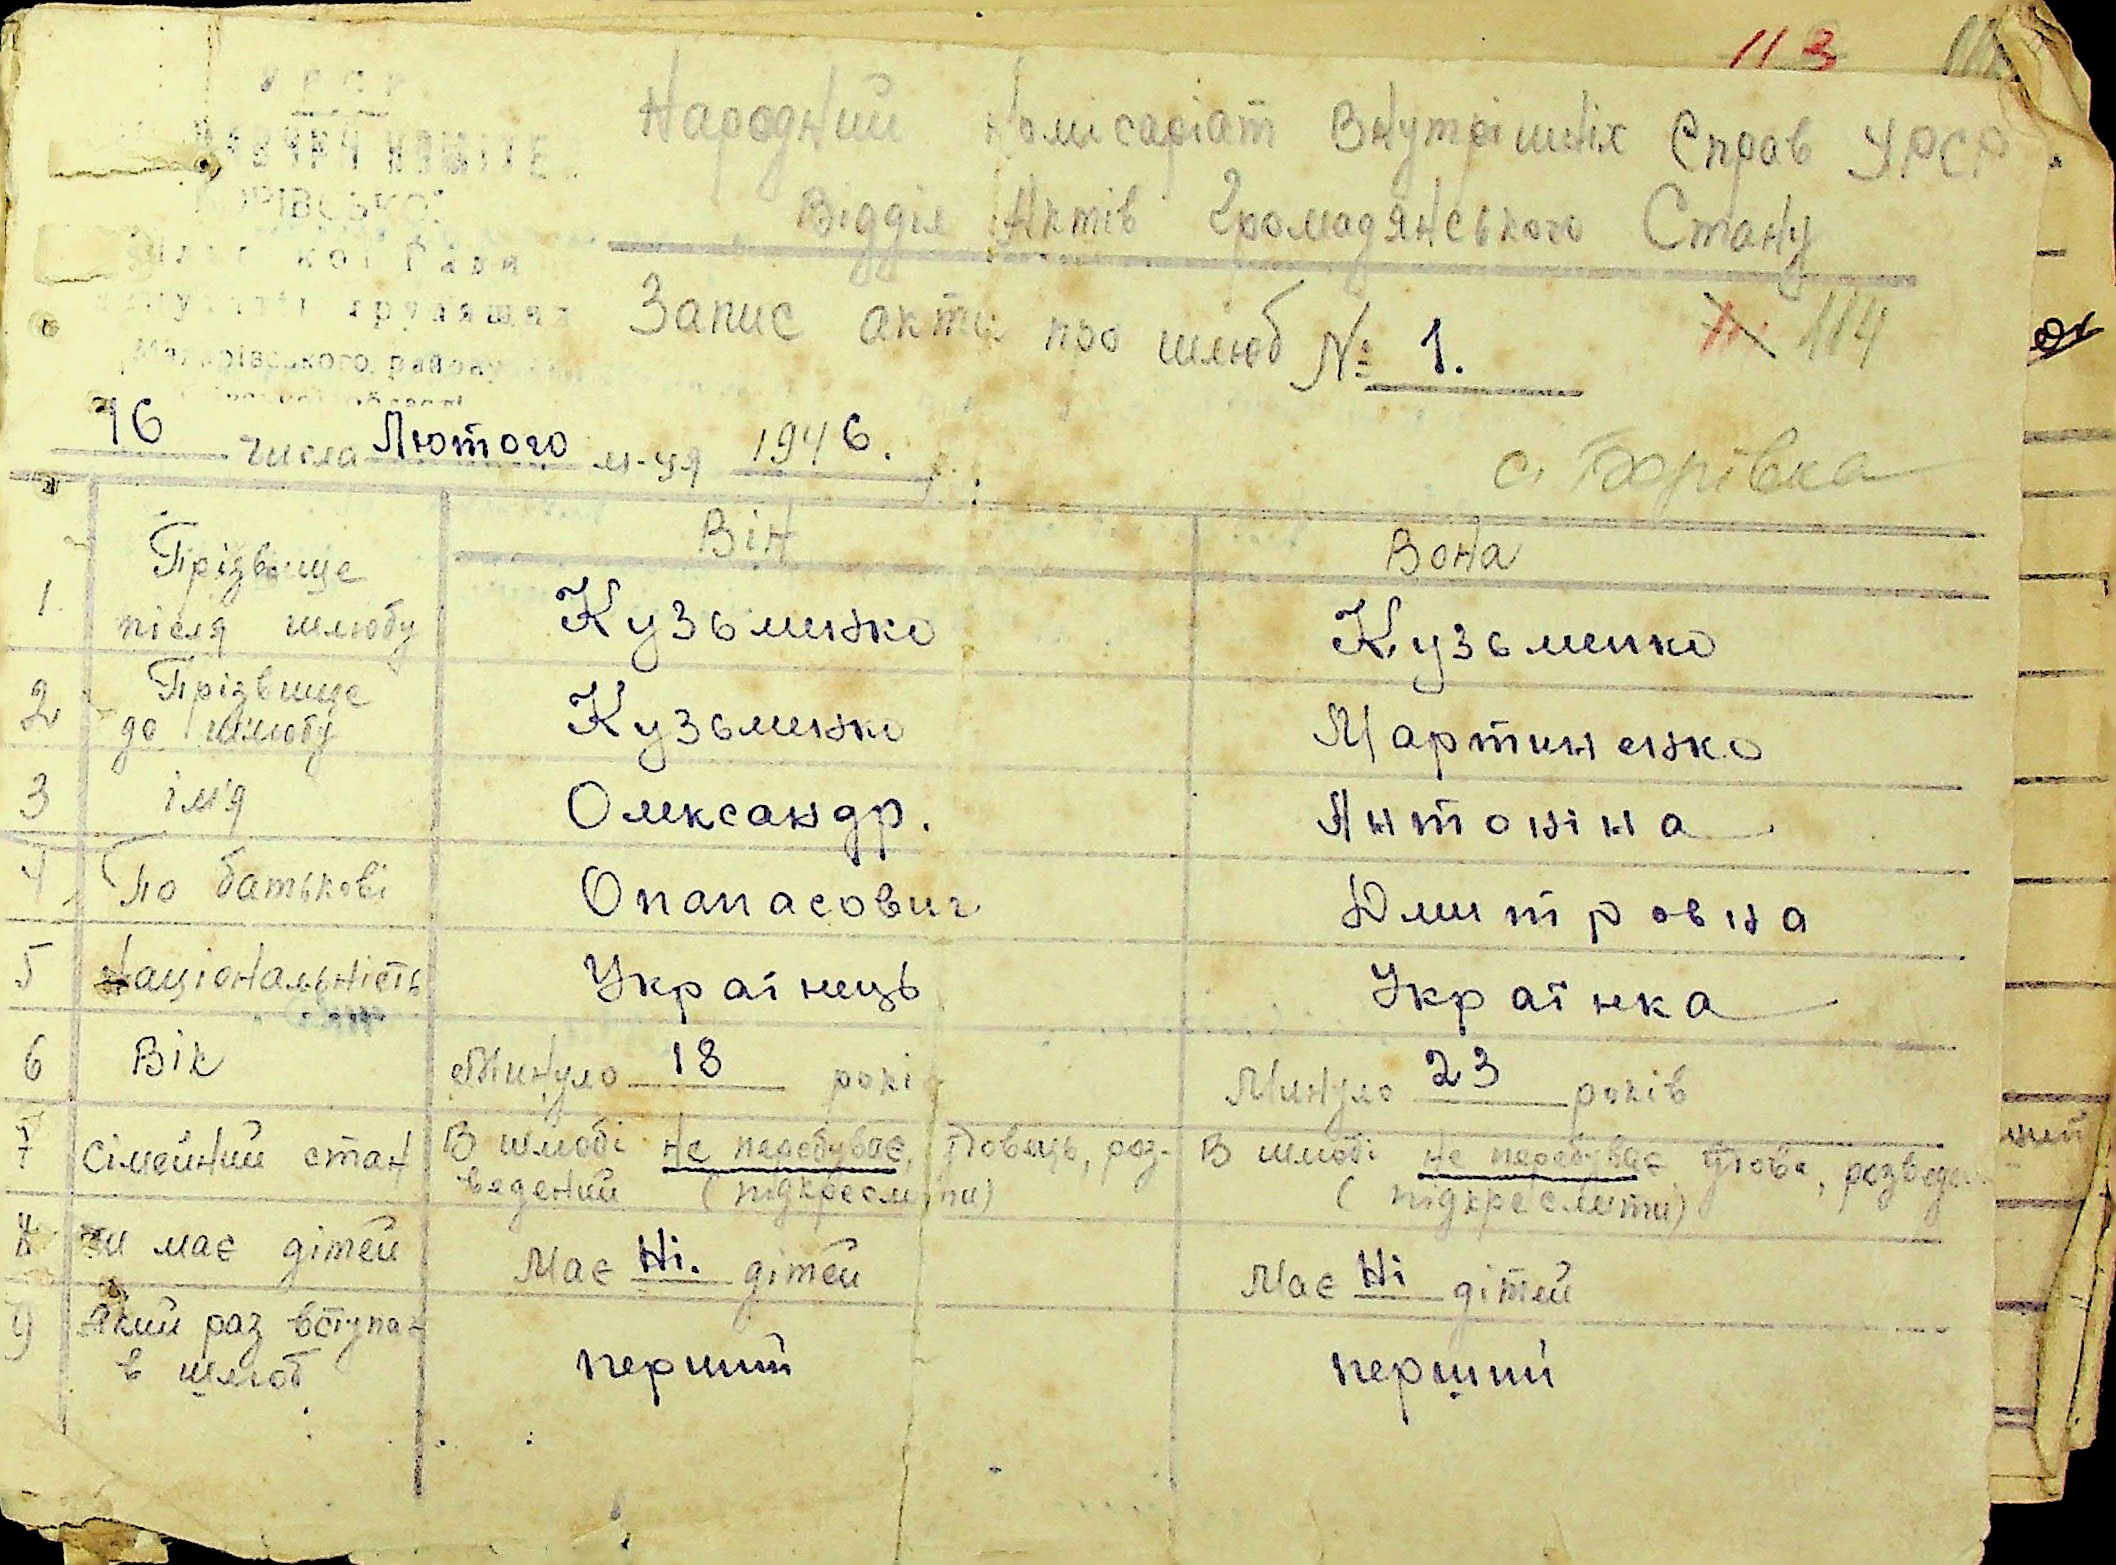 113
УРСР
Народний Комісаріат Внутрішніх Справ УРСР
Відділ Актів Громадянського Стану
Запис акту про шлюб № 1.
114
16 числа Лютого м-ця 1946. р.
с.
Він Вона
1. Прізвище після шлюбу Кузьменко Кузьменко
2 Прізвище до шлюбу Кузьменко Мартиненко
3 ім'я Олександр. Антоніна
4 По батькові Опанасович Дмитровна
5 Національність Українець Українка
6 Вік Минуло 18 рокі Минуло 23 років
7 Сімейний стан В шлюбі не перебуває, вдовець, роз- В шлюбі не перебуває вдова, розведен
ведений (підкреслити) (підкреслити)
8 чи має дітей Має Ні. дітей Має Ні дітей
9 Який раз вступає
в шлюб перший перший